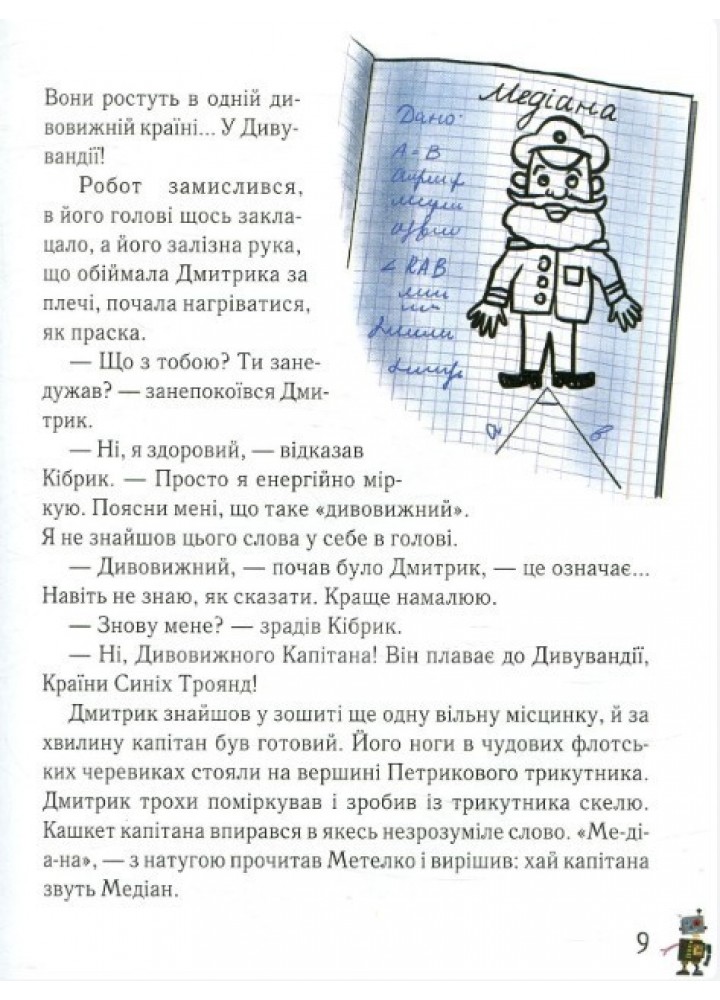 Вони ростуть в одній ди-
вовижній країні... У Диву-
вандії!
Робот замислився,
в його голові щось закла-
цало, а його залізна рука,
що обіймала Дмитрика за
плечі, почала нагріватися,
як праска.
— Що з тобою? Ти зане-
дужав? — занепокоївся Дми-
трик.
— Ні, я здоровий, — відказав
Кібрик. — Просто я енергійно мір-
кую. Поясни мені, що таке «дивовижний».
Я не знайшов цього слова у себе в голові.
— Дивовижний, — почав було Дмитрик, — це означає...
Навіть не знаю, як сказати. Краще намалюю.
— Знову мене? — зрадів Кібрик.
— Ні, Дивовижного Капітана! Він плаває до Дивувандії,
Країни Синіх Троянд!
Дмитрик знайшов у зошиті ще одну вільну місцинку, й за
хвилину капітан був готовий. Його ноги в чудових флотсь-
ких черевиках стояли на вершині Петрикового трикутника.
Дмитрик трохи поміркував і зробив із трикутника скелю.
Кашкет капітана впирався в якесь незрозуміле слово. «Ме-ді-
а-на», — з натугою прочитав Метелко і вирішив: хай капітана
звуть Медіан.
Медіана
Дано:
А = В
∠ КАВ
а
в
9